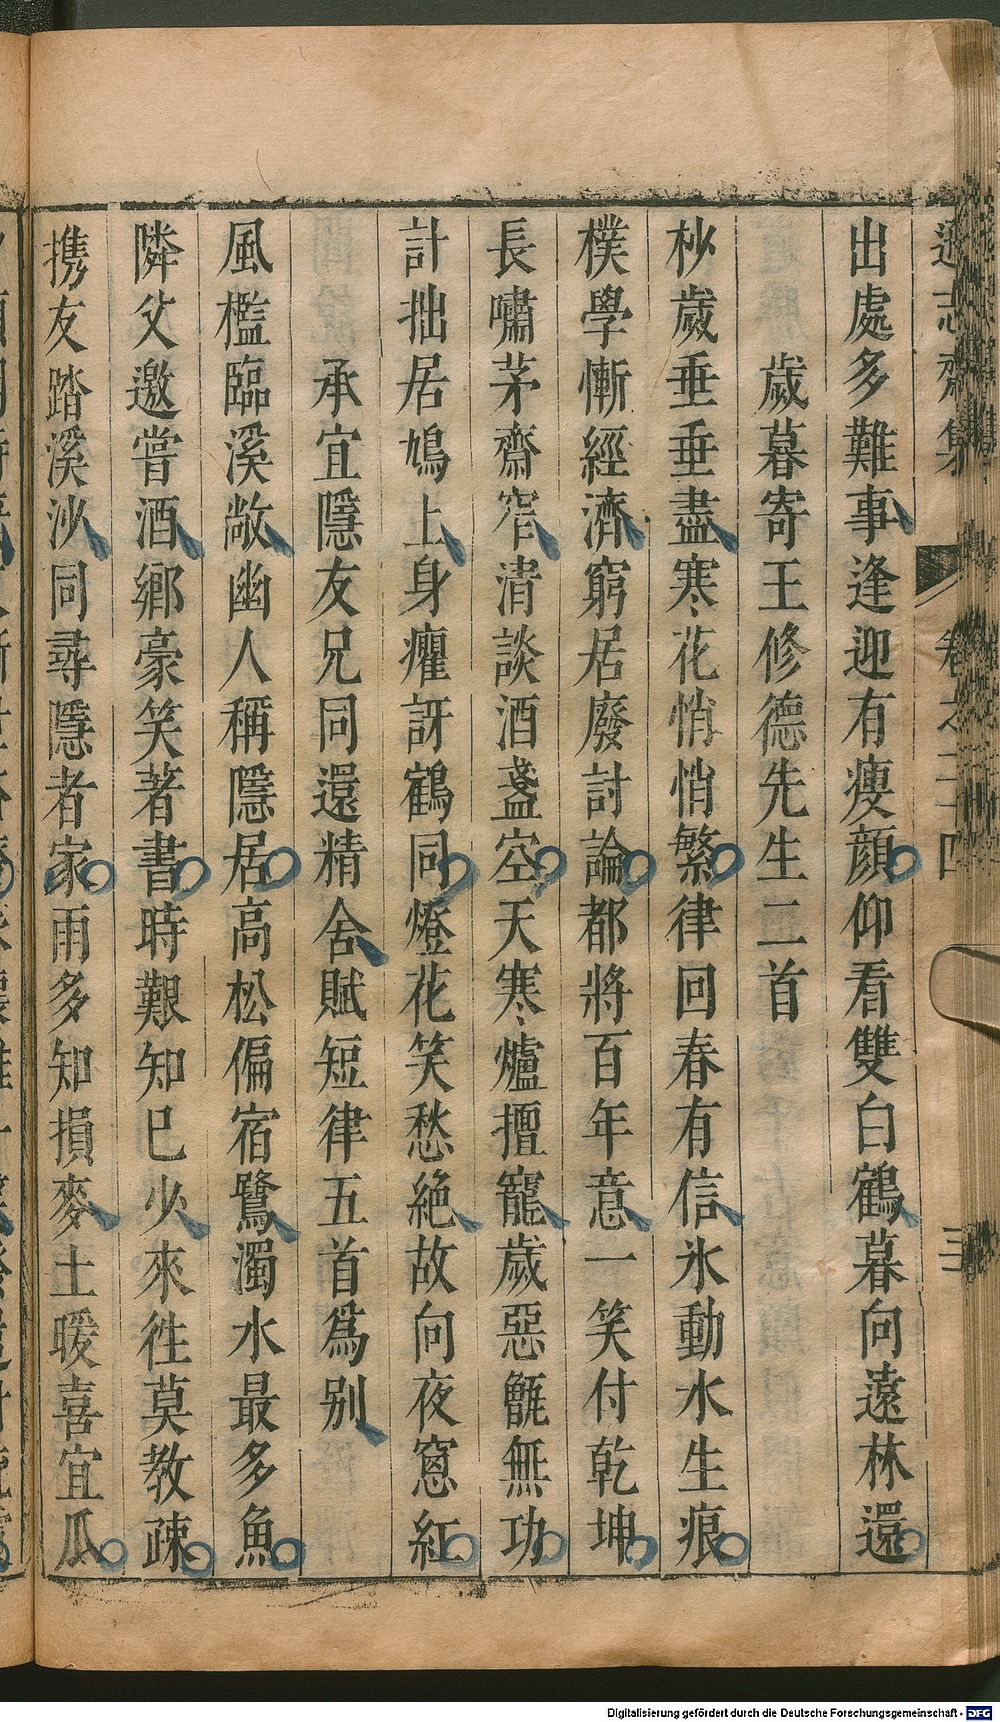 出處多難事逢迎有瘦顏仰看雙白鶴暮向遠林還
歲暮寄王修德先生二首
杪歲垂垂盡寒花悄悄繁律回春有信氷動水生痕
樸學慚經濟窮居廢討論都將百年意一笑付乾坤
長嘯茅齋窄清談酒盞空天寒爐擅寵歲惡甑無功
計拙居鳩上身癯訝鶴同燈花笑愁絶故向夜窻紅
承宜隱友兄同還精舍賦短律五首爲别
風檻臨溪敞幽人稱隱居高松偏宿鷺濁水最多魚
隣父邀嘗酒鄉豪笑著書時艱知巳少來徃莫教疎
携友踏溪沙同尋隱者家雨多知損麥土暖喜宜瓜
卷之二十四
三
Digitalisierung gefördert durch die Deutsche Forschungsgemeinschaft - DFG